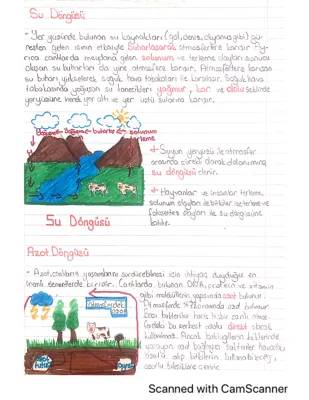 Su Döngüsü
- Yer yüzünde bulunan su kaynakları (göl, deniz, okyanus gibi) gü-
neşten gelen ısının etkisiyle buharlaşarak atmosfere karışır. Ay-
rıca canlılarda meydana gelen solunum ve terleme olayları sonucu
oluşan su buharları da yine atmosfere karışır. Atmosfere karışan
su buharı yükselerek soğuk hava tabakaları ile karşılaşır. Soğuk hava
tabakasında yoğuşan su tanecikleri yağmur, kar ve dolu şeklinde
yeryüzüne inerek yer altı ve yer üstü sularına karışır.
solunum
terleme
+ Suyun yeryüzü ile atmosfer
arasında sürekli olarak dolanımına
su döngüsü denir.
+ Hayvanlar ve insanlar terleme,
solunum olayları ile bitkiler ise terleme ve
fotosentez olayları ile su döngüsüne
katılır.
Su Döngüsü
Azot Döngüsü
- Azot, canlıların yaşamlarını sürdürebilmesi için ihtiyaç duyduğu en
önemli elementlerden birisidir. Canlılarda bulunan DNA, protein ve vitamin
gibi moleküllerin yapısında azot bulunur.
Atmosferde %78 oranında azot bulunur.
Bazı bakteriler hariç hiçbir canlı atmos-
ferdeki bu serbest azotu direkt olarak
kullanamaz. Ancak baklagillerin köklerinde
yaşayan azot bağlayıcı bakteriler havadaki
azotu alıp bitkilerin kullanabileceği
azotlu bileşiklere çevirir.
Scanned with CamScanner